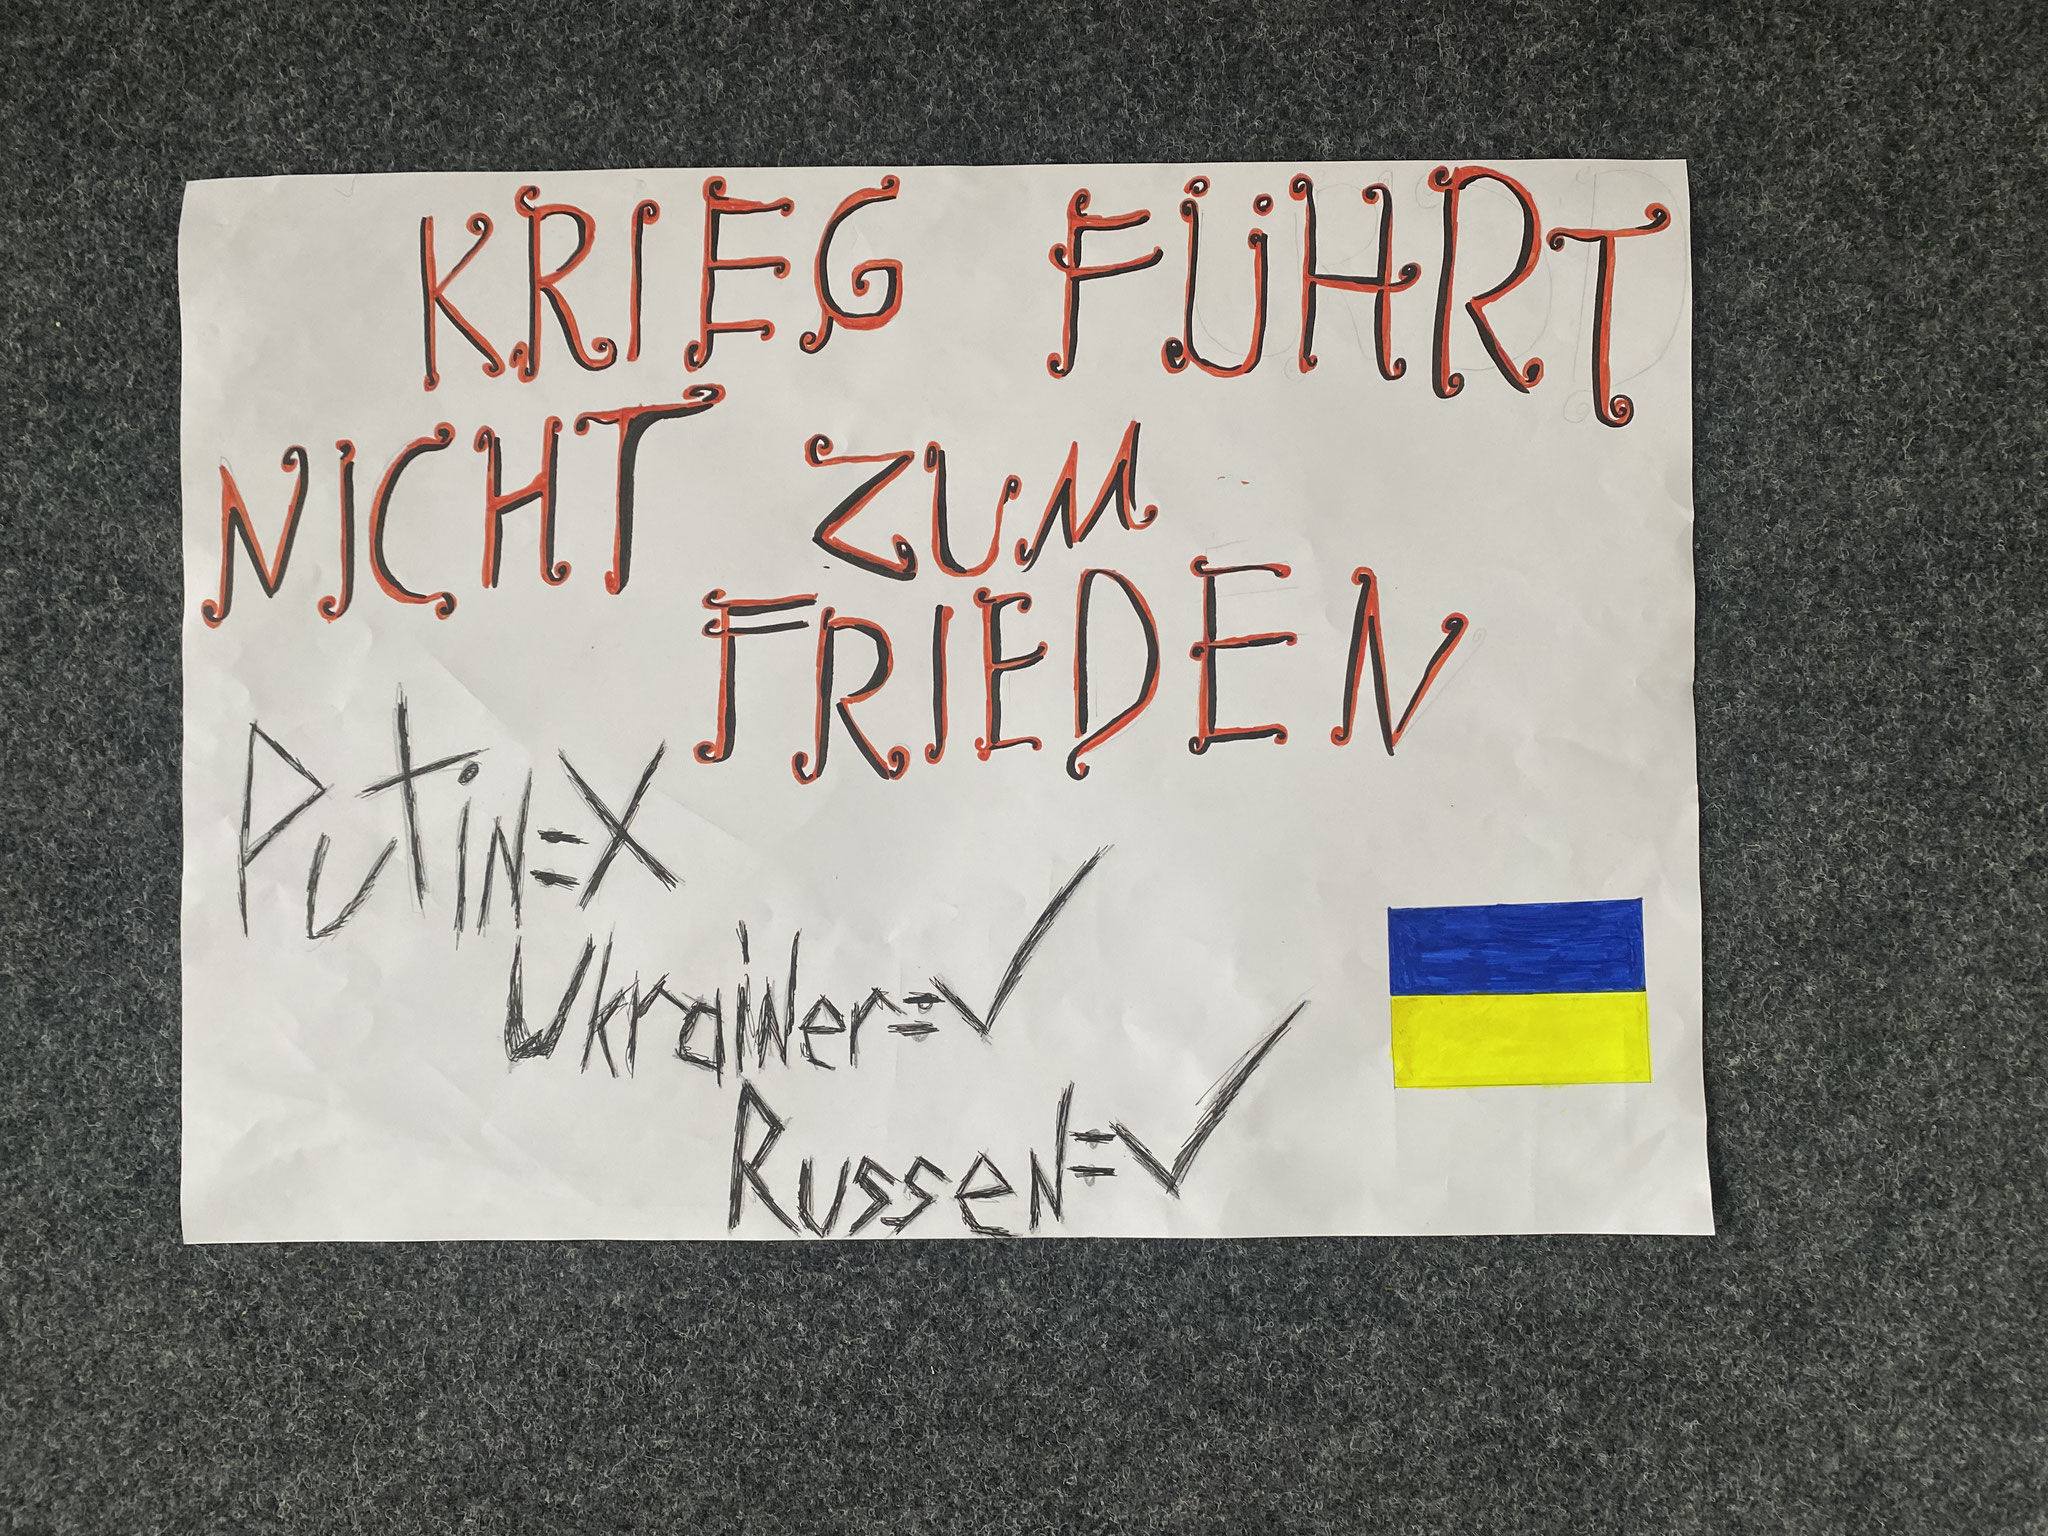 KRIEG FÜHRT
NICHT ZUM
FRIEDEN
Putin=X
Ukrainer=✓
Russen=✓